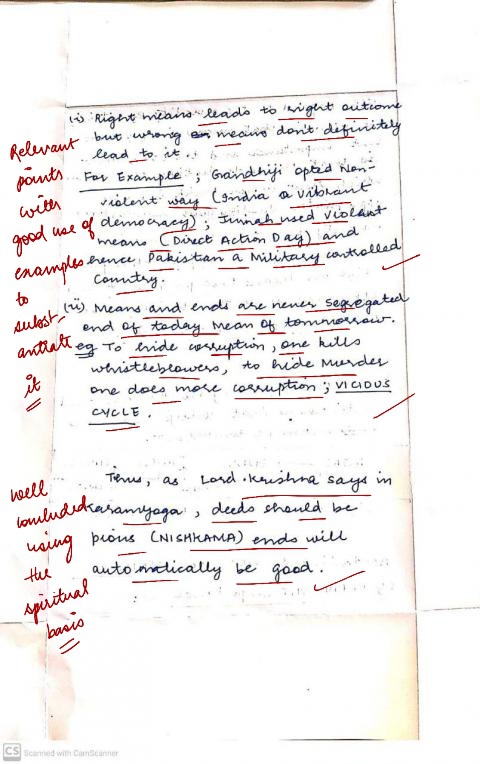 (i) Right means leads to right outcome
but wrong means don't definitely
lead to it.
For Example ; Gandhiji opted Non-
violent way (India a vibrant
democracy) ; Jinnah used violant
means (Direct Action Day) and
hence Pakistan a Military controlled
country.
(ii) Means and ends are never segregated
end of today mean of tommorrow.
eg To hide corruption, one kills
whistleblowers, to hide Murder
one does more corruption ; VICIOUS
CYCLE.
Thus, as Lord Krishna says in
Karamyoga, deeds should be
pious (NISHKAMA) ends will
automatically be good.
Relevant
points
with
good use of
examples
to
subst-
antiate
it
Well
concluded
using
the
spiritual
basis
CS Scanned with CamScanner